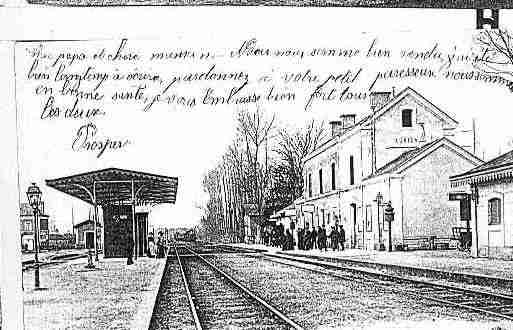 Mon papa et chere maman. Nous nous somme bien rendu, j'ai été
bien lontemps à écrire, pardonnez à votre petit paresseux nous sommes
en bonne santé, je vous embrasse bien fort tous
les deux.
Prosper